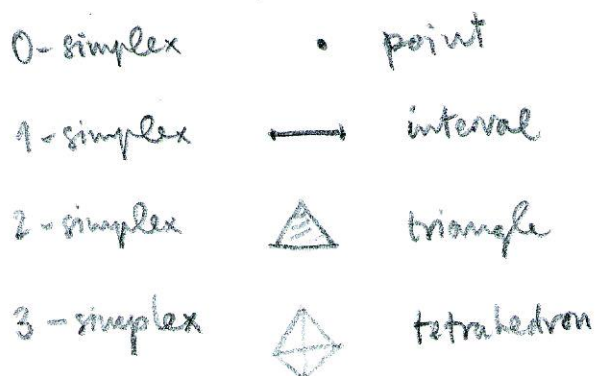 0-simplex point
1-simplex interval
2-simplex triangle
3-simplex tetrahedron